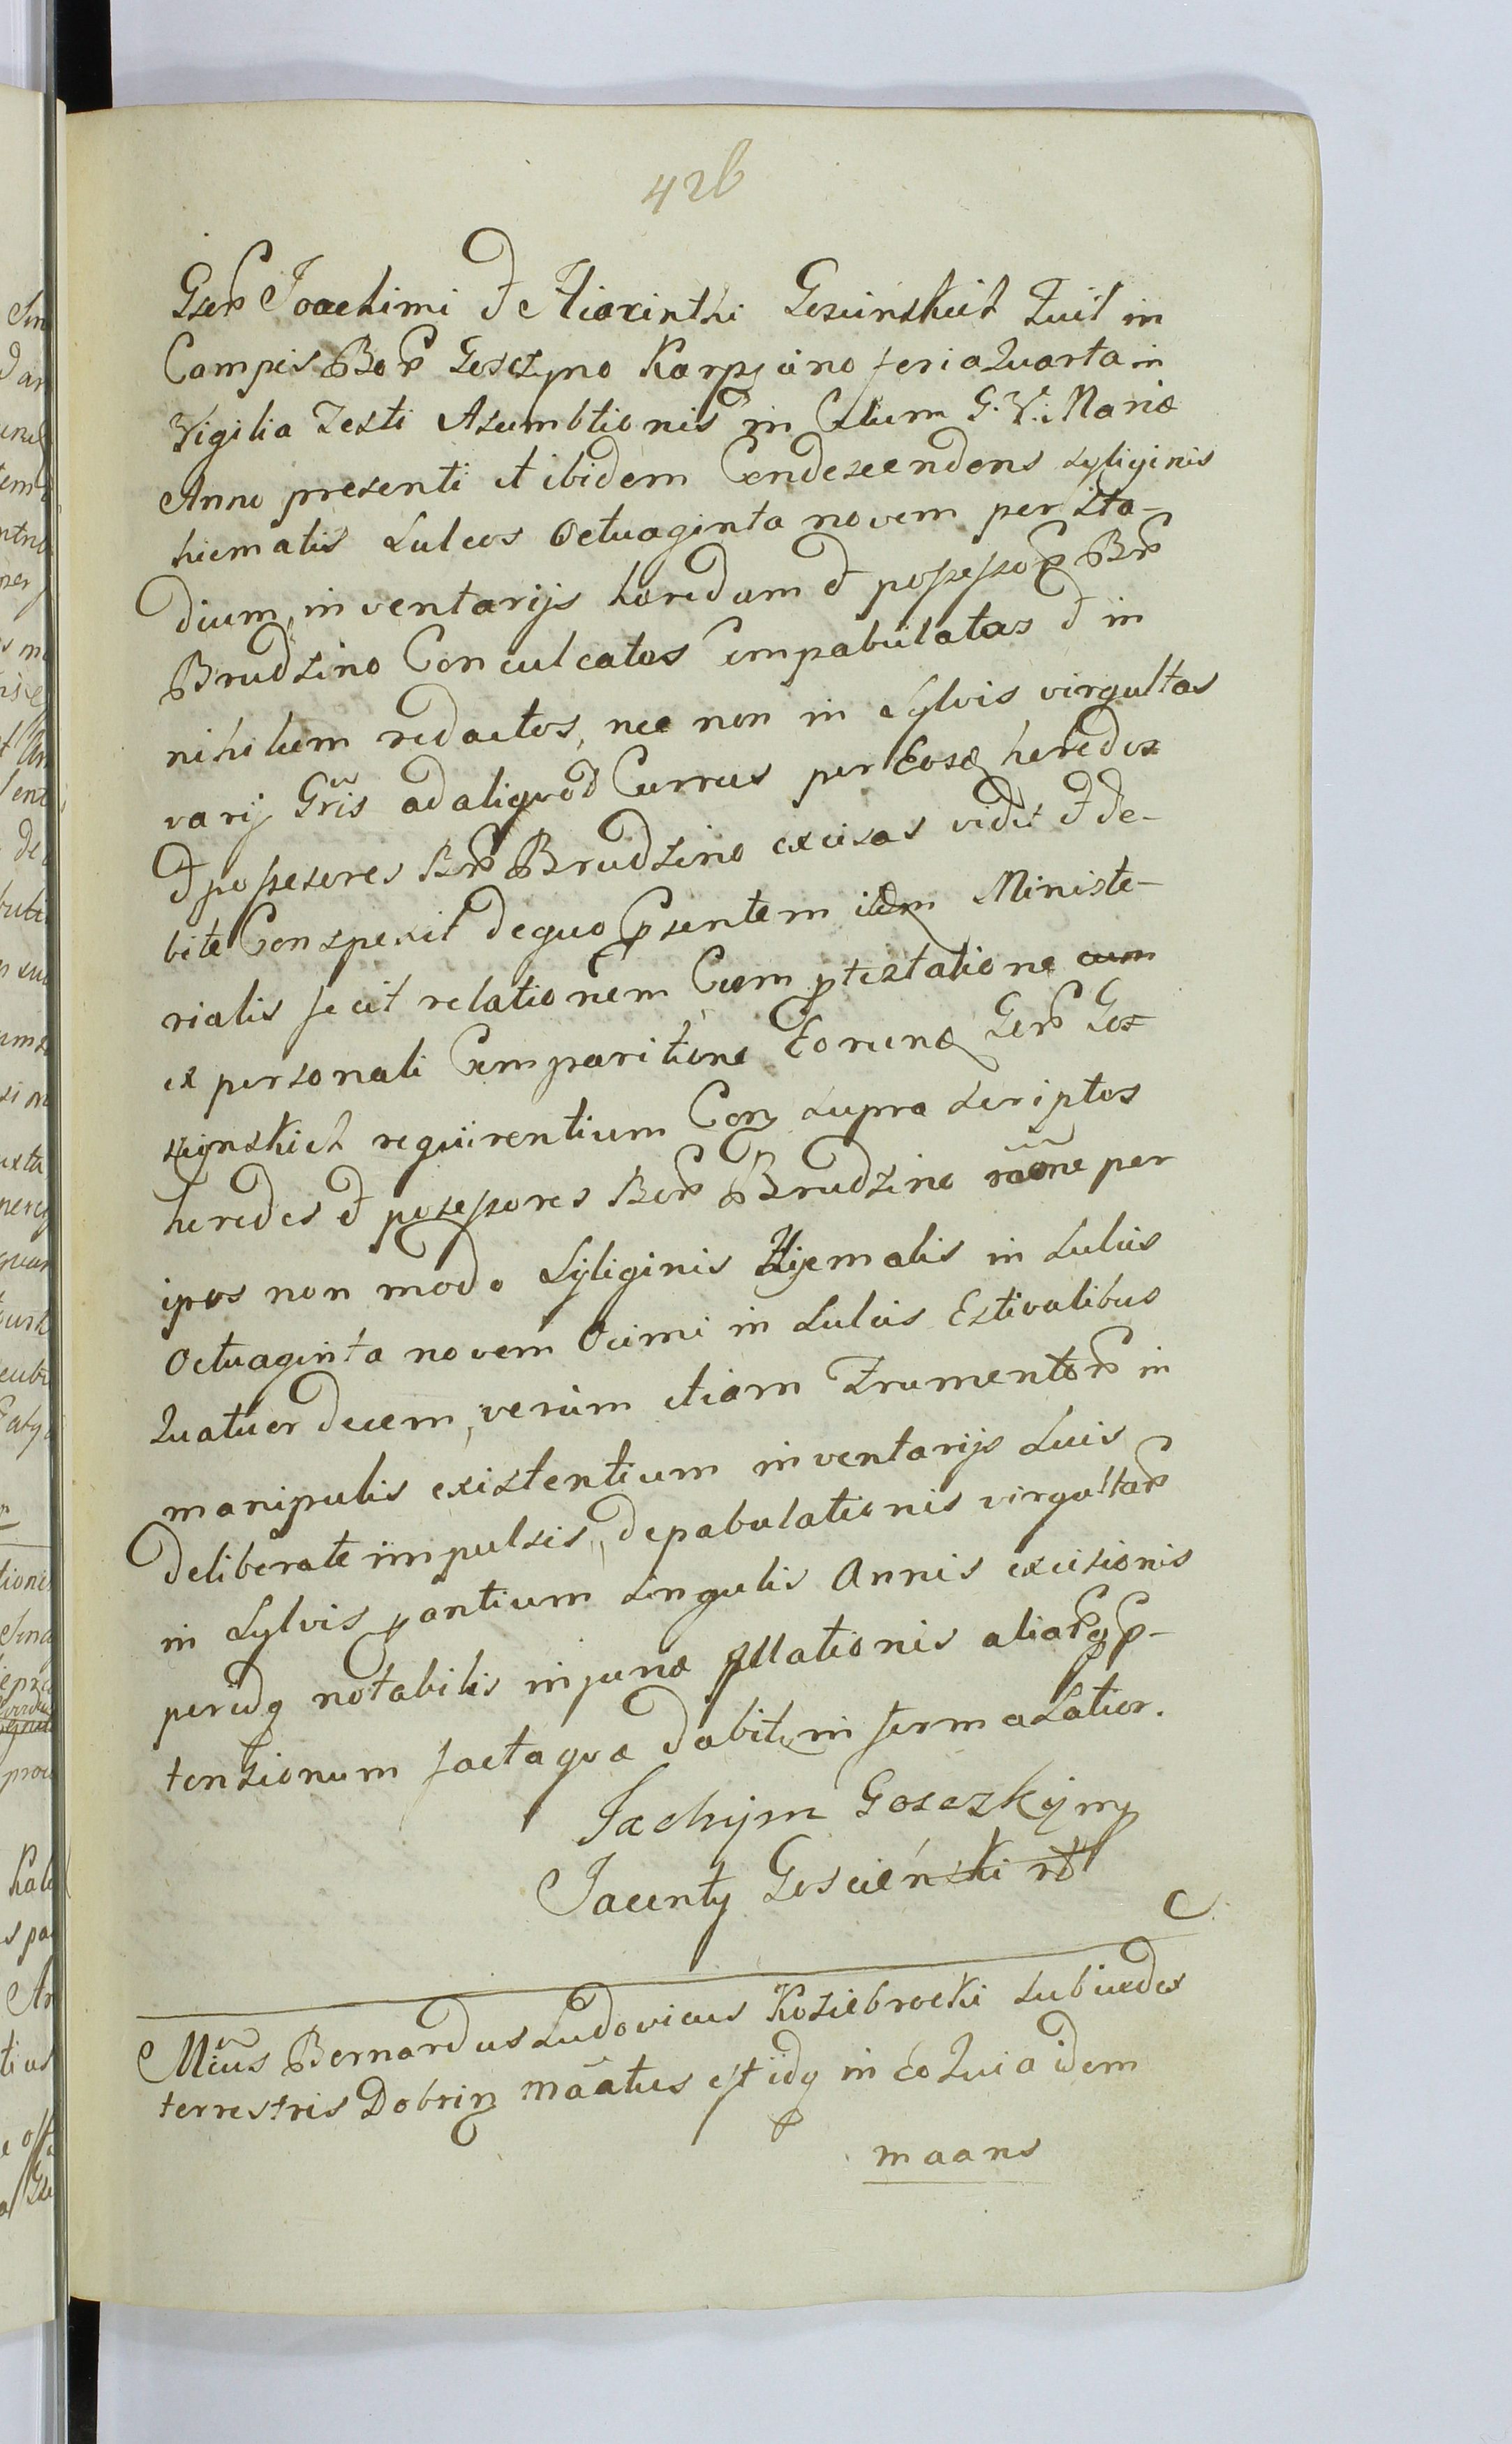 426
Gser Joachimi & Hiacinthi Gosciinskich Fuit in
Campis Bor Gosczyno Karpzino feria Quarta in
Vigilia Festi Asumbtionis in Celum G. V. Mariæ
Anno presenti et ibidem Condescendens syliginis
hiematis Sulcos Octuaginta novem per Sta-
dium, inventarijs heredum & possessor Br
Brudzino Conculcatos Compabulatos & in
nihilum redactos, nec non in Sylvis virgultas
varij Gñis ad aliquod Currus per Eosq heredes
& possesores Bor Brudzino excisas vidit & de-
bite Conspexit de quo Psentem idem Ministe-
rialis fecit relationem Cum ptestatione cum
ex personali Comparitione Eorundq Gsr Gos-
czynskich reqùirentium Con supra scriptos
heredes & posessores Bor Brudzino rãone per
ipsos non modo Syliginis Hyemalis in Sulcis
Octuaginta novem Ocimi in Sulcis Estivalibus
Quatuor decem, verùm etiam Frumentor in
manipulis existentium inventarijs Suis
deliberate impulsis, depabulationis virgultar
in Sylvis pantium Singulis Annis excisionis
perindq notabilis injuriæ pllationis aliarq p-
tensionum facta quæ dabitur in forma Latior.
Jachÿm Gosczkÿ mp
Jacenty Goscienski mp
C
Mcius Bernardus Ludovicus Koziebrocki Subiudex
terrestris Dobrin mãatus est iidq in eo Quia idem
maans